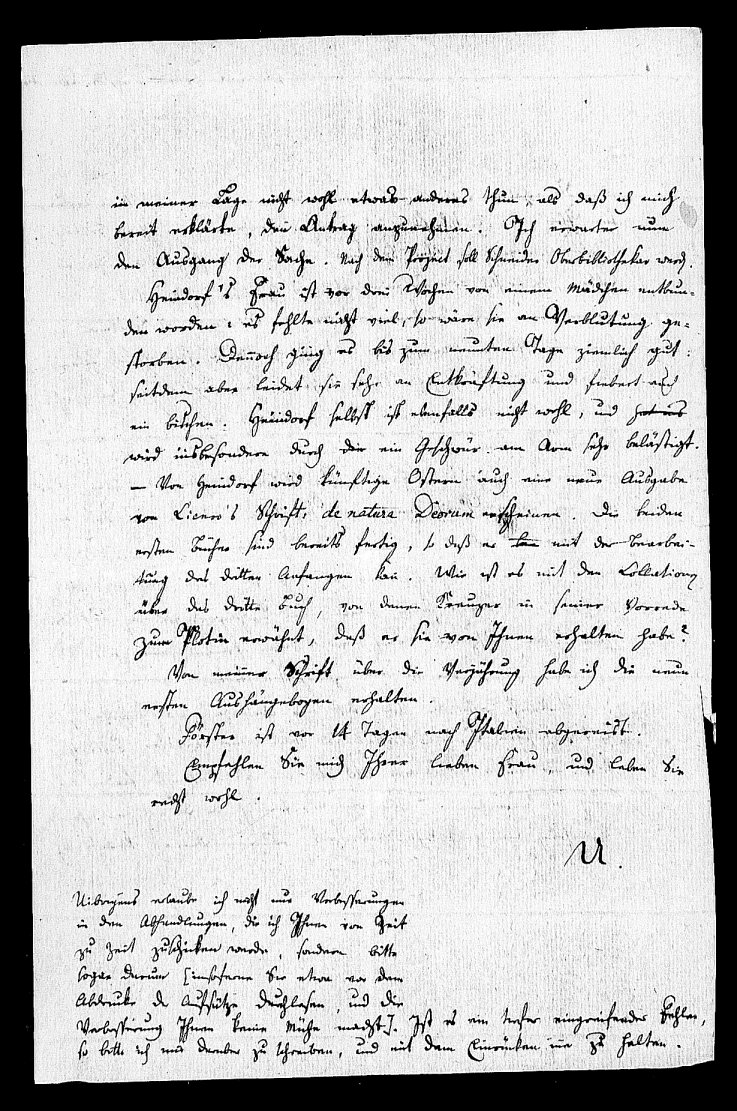 in meiner Lage nicht wohl etwas anderes thun, als daß ich mich
bereit erklärte, den Antrag anzunehmen. Ich erwarte nun
den Ausgang der Sache. Nach dem Project soll Schneider Oberbibliothekar werd.
Heindorf's Frau ist vor drei Wochen von einem Mädchen entbun-
den worden: es fehlte nicht viel, so wäre sie an Verblutung ge-
storben. Dennoch ging es bis zum neunten Tage ziemlich gut:
seitdem aber leidet sie sehr an Entkräftung und fiebert auch
ein bischen. Heindorf selbst ist ebenfalls nicht wohl, und
wird insbesondere durch ein Geschwür am Arm sehr belästigt.
– Von Heindorf wird künftige Ostern auch eine neue Ausgabe
von Cicero's Schrift, de natura Deorum erscheinen. Die beiden
ersten Bücher sind bereits fertig, so daß er mit der Bearbei-
tung des dritten anfangen kan. Wie ist es mit den Collationen
über das dritte Buch, von denen Kreuzer in seiner Vorrede
zum Plotin erwähnt, daß er sie von Ihnen erhalten habe?
Von meiner Schrift über die Verjährung habe ich die neun
ersten Aushängebogen erhalten.
Förster ist vor 14 Tagen nach Italien abgereist.
Empfehlen Sie mich Ihrer lieben Frau, und leben Sie
recht wohl.
U.
Uibrigens erlaube ich nicht nur Verbesserungen
in den Abhandlungen, die ich Ihnen von Zeit
zu Zeit zuschicken werde, sondern bitte
sogar darum [insoferne Sie etwa vor dem
Abdrucke die Aufsätze durchlesen, und die
Verbesserung Ihnen keine Mühe macht]. Ist es ein tiefer eingreifender Fehler,
so bitte ich mir darüber zu schreiben, und mit dem Einrücken inne zu halten.